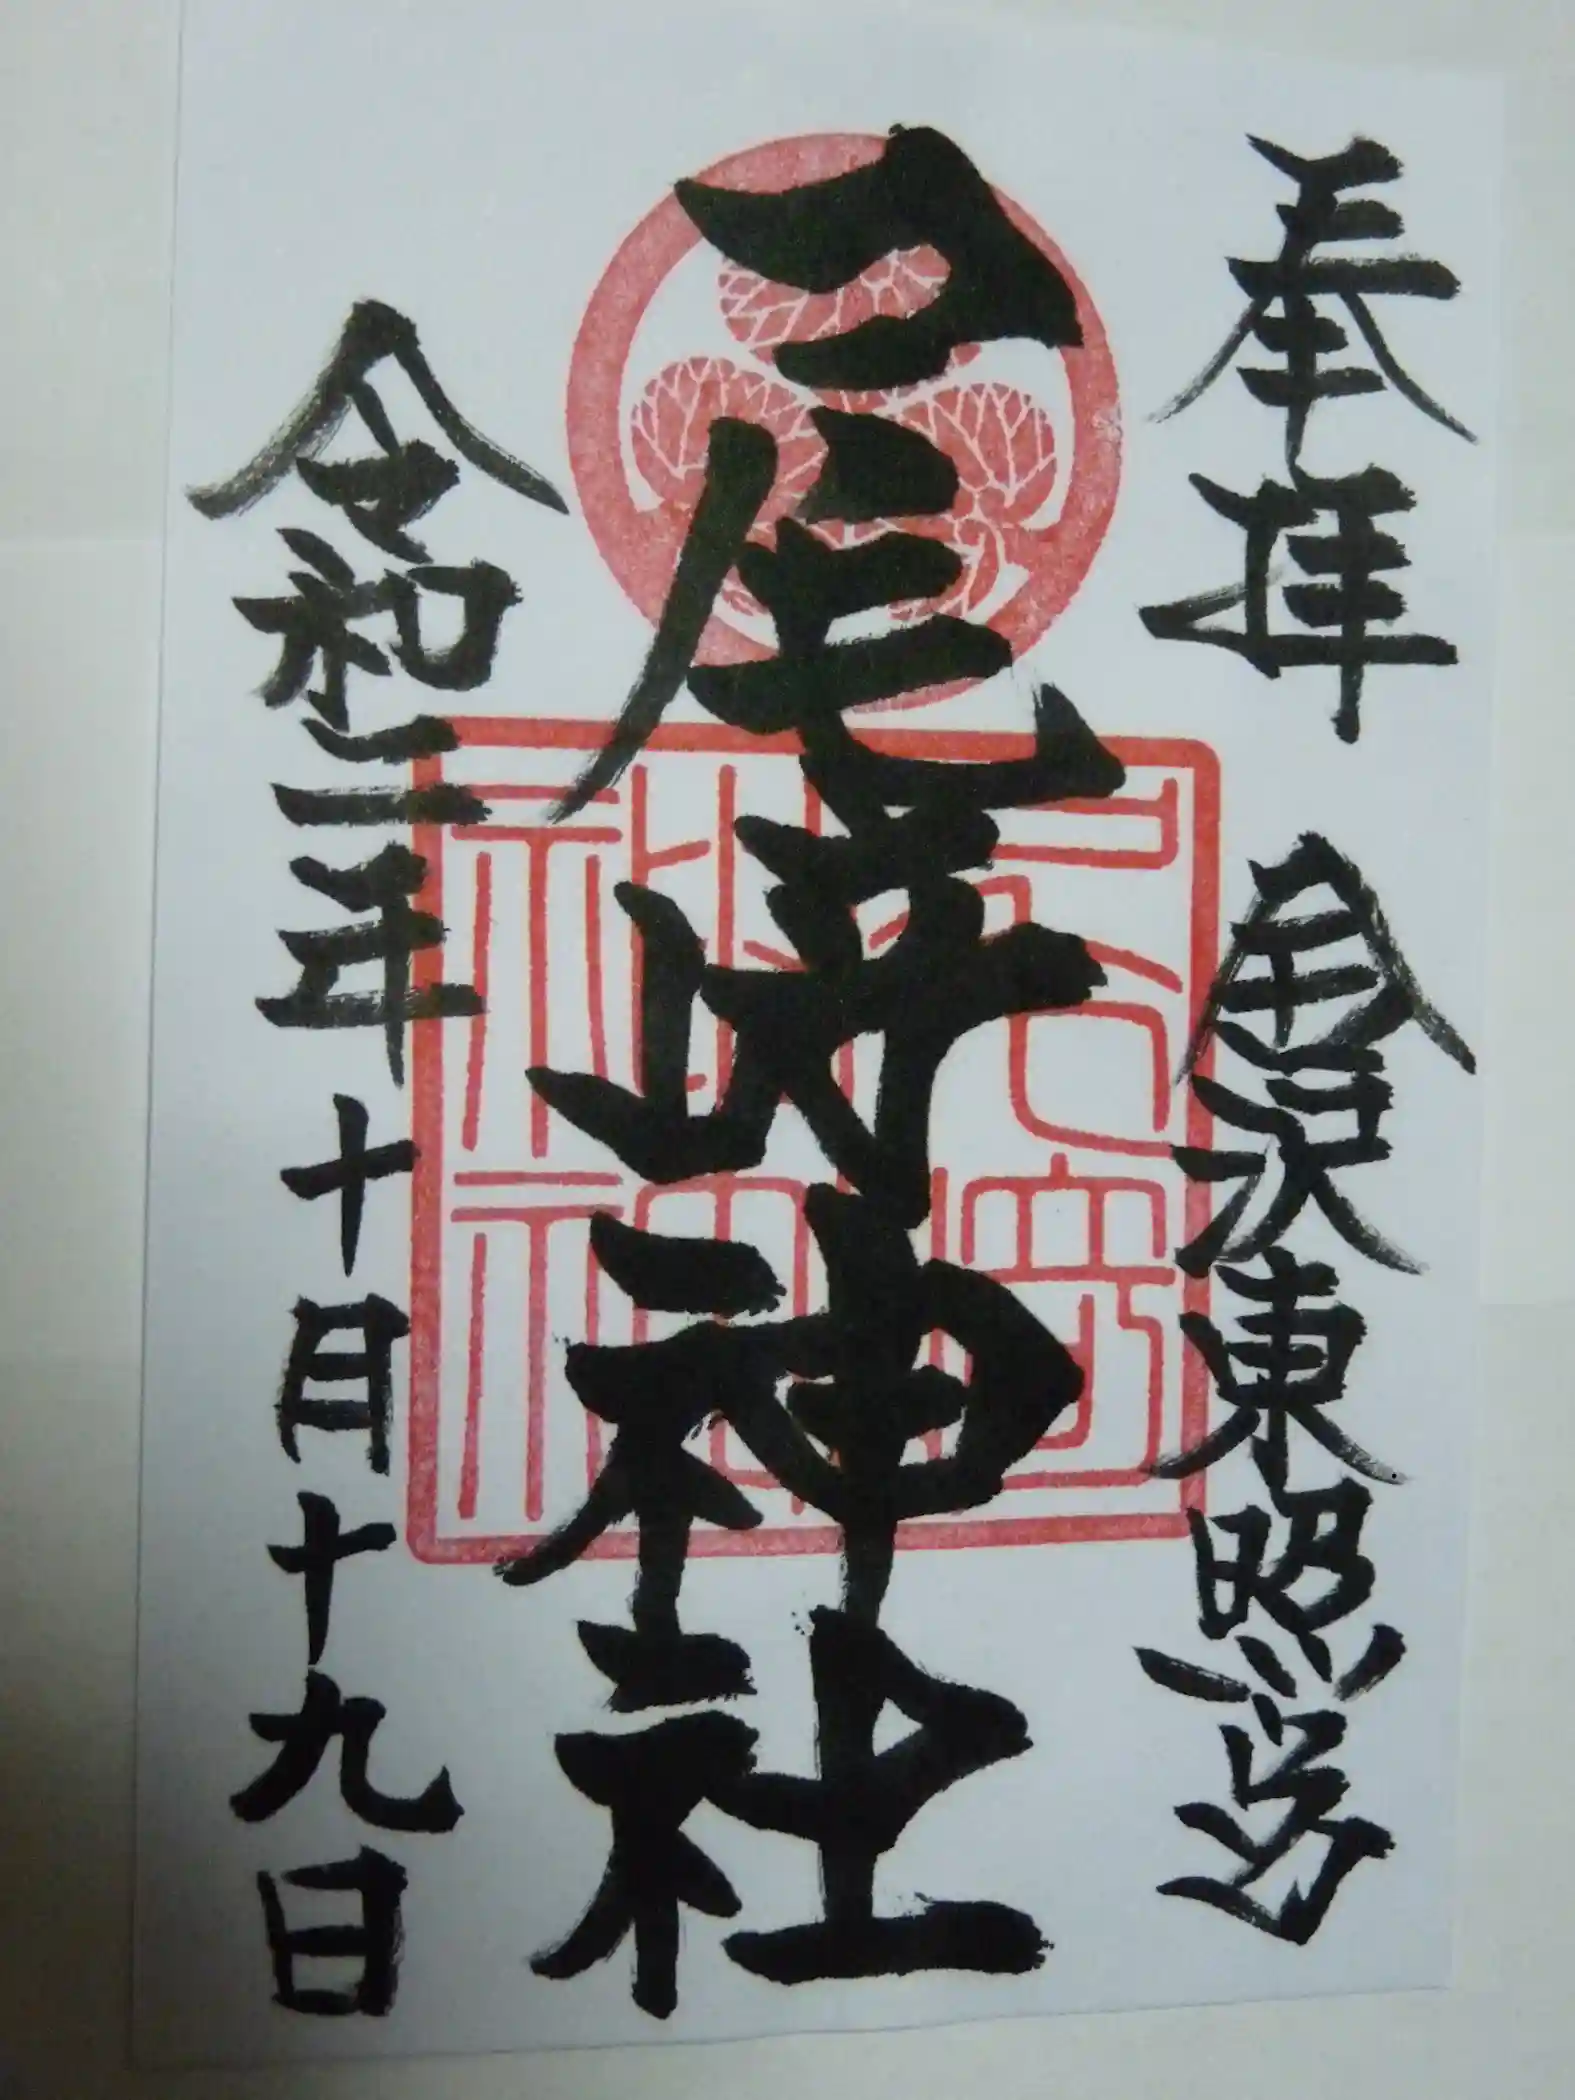 奉拝 金沢東照宮
尾崎神社
令和三年十月十九日